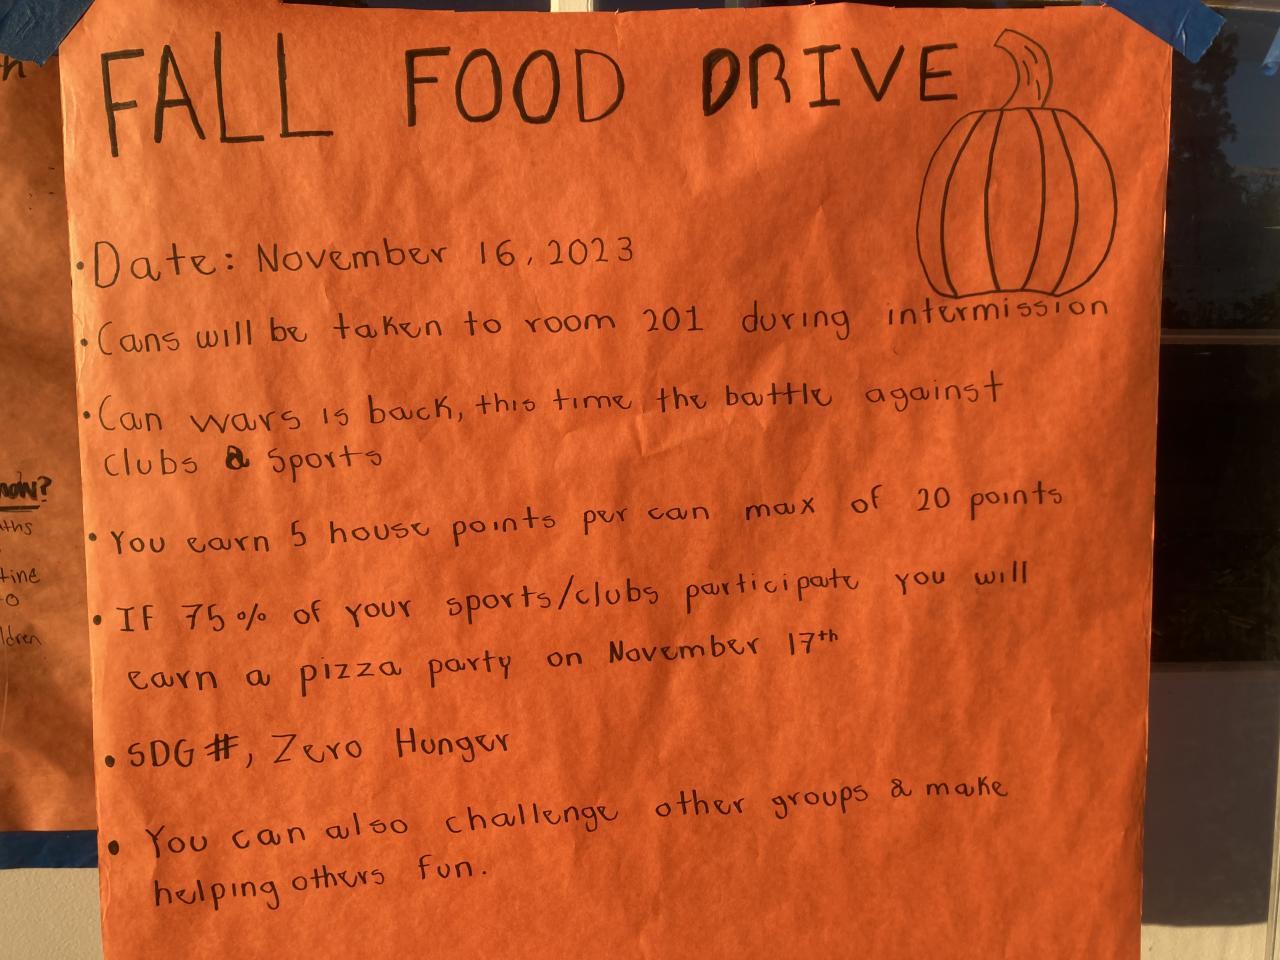 FALL FOOD DRIVE
• Date: November 16, 2023
• Cans will be taken to room 201 during intermission
• Can wars is back, this time the battle against
clubs & sports
• You earn 5 house points per can max of 20 points
• IF 75% of your sports/clubs participate you will
earn a pizza party on November 17th
• SDG #, Zero Hunger
• You can also challenge other groups & make
helping others fun.
now?